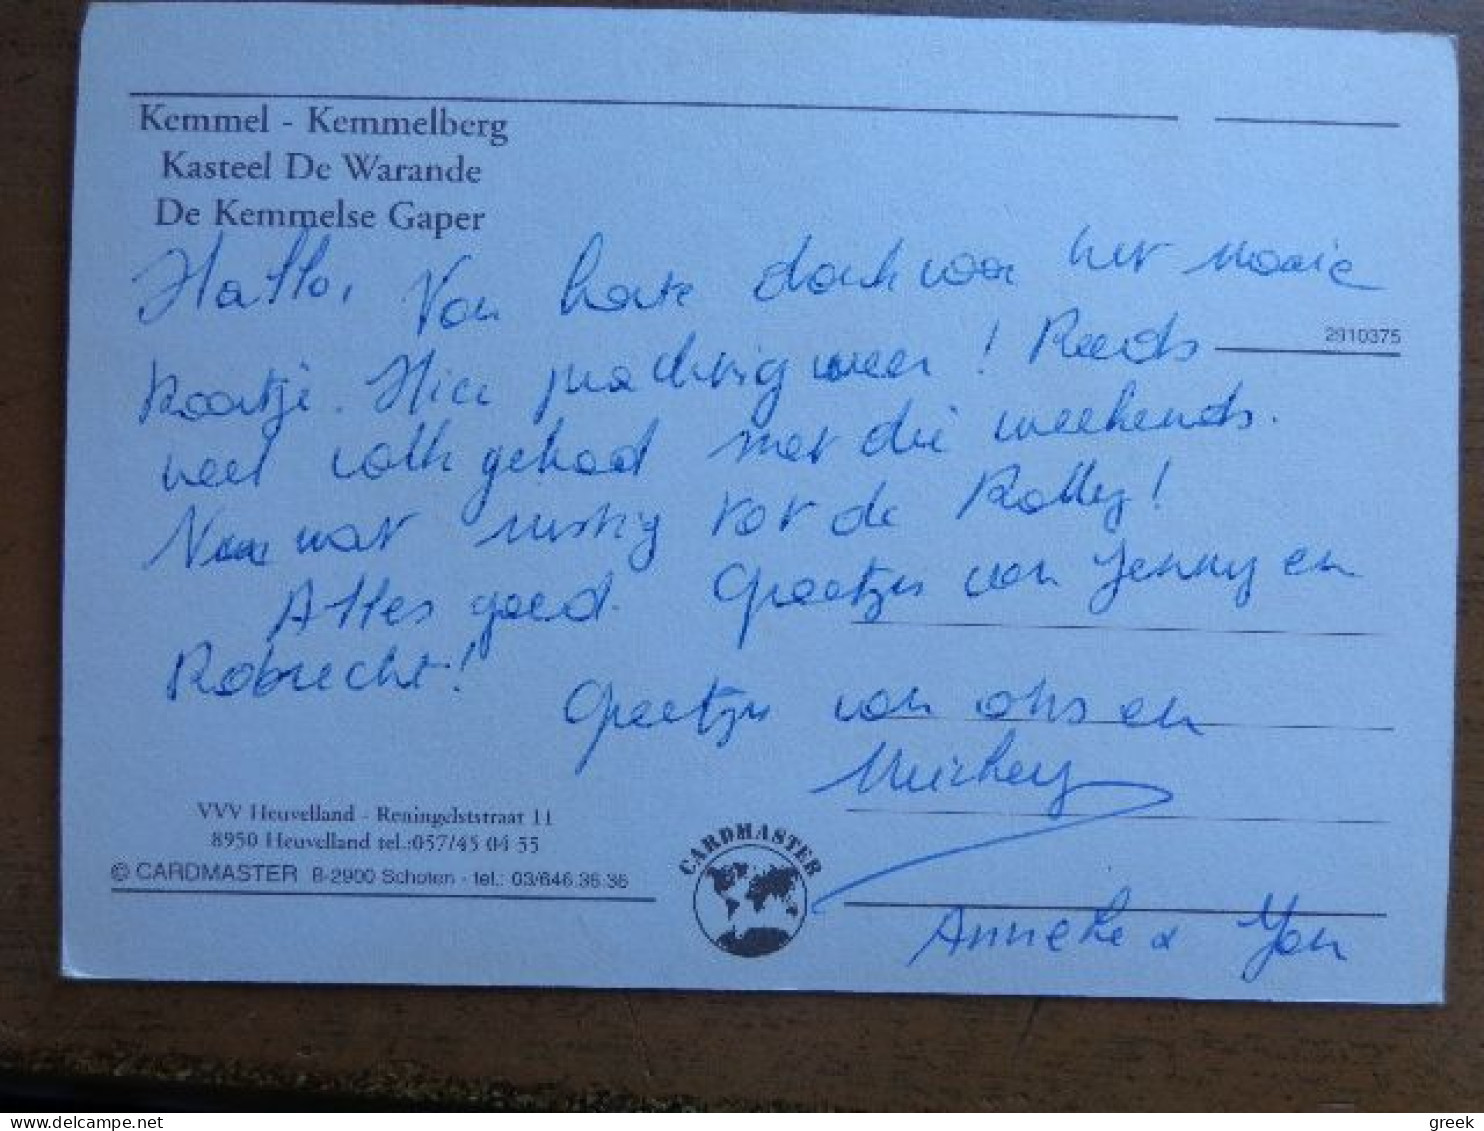 Kemmel - Kemmelberg
Kasteel De Warande
De Kemmelse Gaper
Hallo, Van harte dank voor het mooie
2910375
kaartje. Hier prachtig weer! Reeds
veel volk gehad met die weekends.
Nu wat rustig tot de Rally!
Alles goed. Groetjes van Jenny en
Robrecht!
Groetjes van ons en
Mickey
VVV Heuvelland - Reningelststraat 11
8950 Heuvelland tel.:057/45 04 55
© CARDMASTER B-2900 Schoten - tel.: 03/646.36.36
CARDMASTER
Anneke & Jan
greek